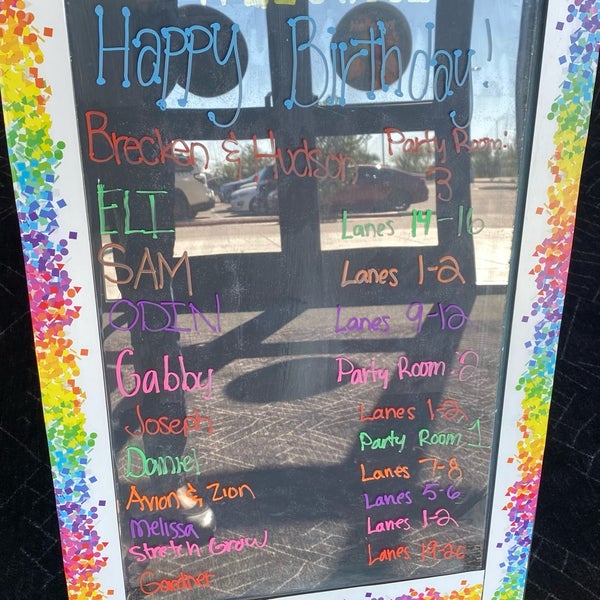 Happy Birthday!
Brecken & Hudson Party Room: 3
ELI Lanes 14-16
SAM Lanes 1-2
ODIN Lanes 9-12
Gabby Party Room: 2
Joseph Lanes 1-2
Daniel Party Room 1
Avion & Zion Lanes 7-8
Melissa Lanes 5-6
Stretch n Grow Lanes 1-2
Gardner Lanes 19-20